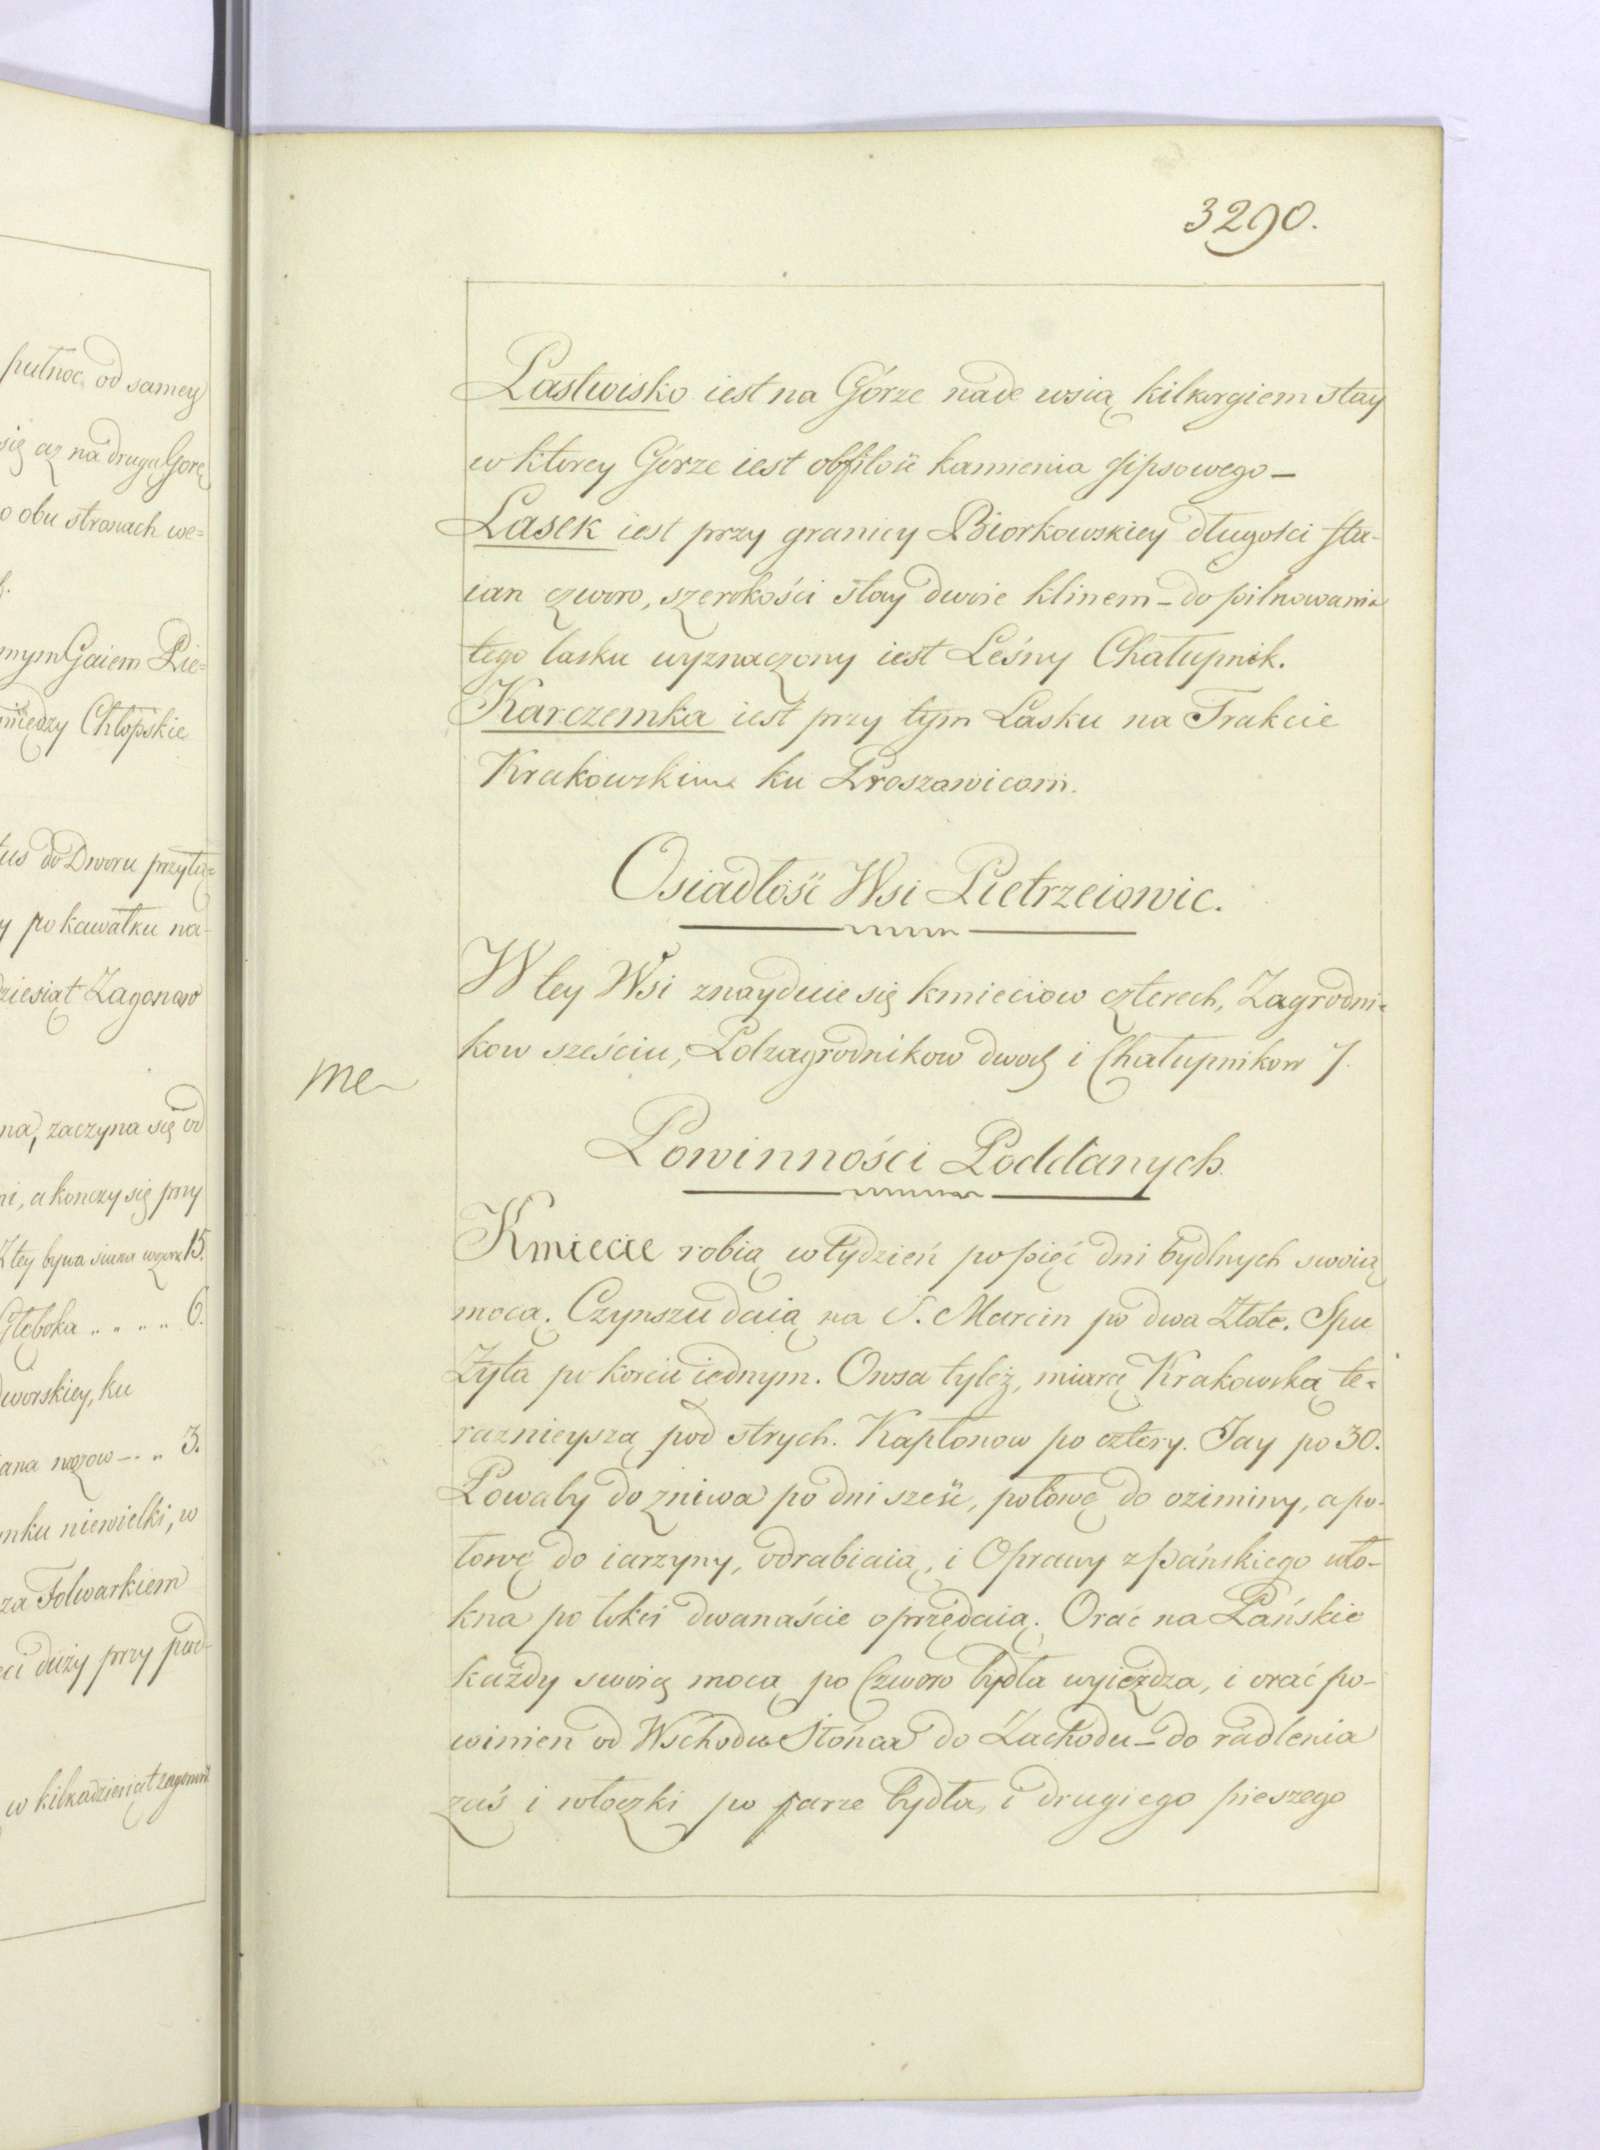 3290.
Pastwisko iest na Górze nade wsią kilkorgiem stay
w ktorey Górze iest obfitość kamienia gipsowego —
Lasek iest przy granicy Biorkowskiey długości sta-
ian czworo, szerokości stay dwoie klinem — do pilnowania
tego lasku wyznaczony iest Leśny Chałupnik.
Karczemka iest przy tym Lasku na Trakcie
Krakowskim ku Proszowicom.
Osiadłość Wsi Pietrzeiowic.
W tey Wsi znayduie się kmieciow czterech, Zagrodni-
kow sześciu, Podzagrodnikow dwoch i Chałupnikow 7.
Powinności Poddanych.
Kmiecie robią w tydzień po pięć dni bydlnych swoią
mocą. Czynszu daią na S. Marcin po dwa Złote. Spu
Zyta po korcu iednym. Owsa tyleż, miarą Krakowską te-
raznieyszą pod strych. Kapłonow po cztery. Jay po 30.
Powaby do zniwa po dni sześć, połowę do oziminy, a po-
łowę do iarzyny, odrabiaią, i Oprawy z Pańskiego włó-
kna po łokci dwanaście oprzędaią. Orać na Pańskie
każdy swoią mocą po Czworo bydła wyieżdza, i orać po-
winien od Wschodu Słońca do Zachodu — do radlenia
zaś i włoczki po parze bydła, i drugiego pieszego
me
putnoc, od samey
się aż na drugą Gorę
o obu stronach we=
mym Gaiem Pie=
między Chłopskie
tus do Dworu przyłą-
y po kawałku na-
dziesiąt Zagonow
na, zaczyna się od
ni, a konczy się przy
Z tey bywa siana wozow 15.
Głęboka „ „ „ „ 6.
Dworskiey, ku
ana wozow — . „ 3.
nku niewielki, w
za Folwarkiem
duży przy pod-
w kilkadziesiąt zagonow